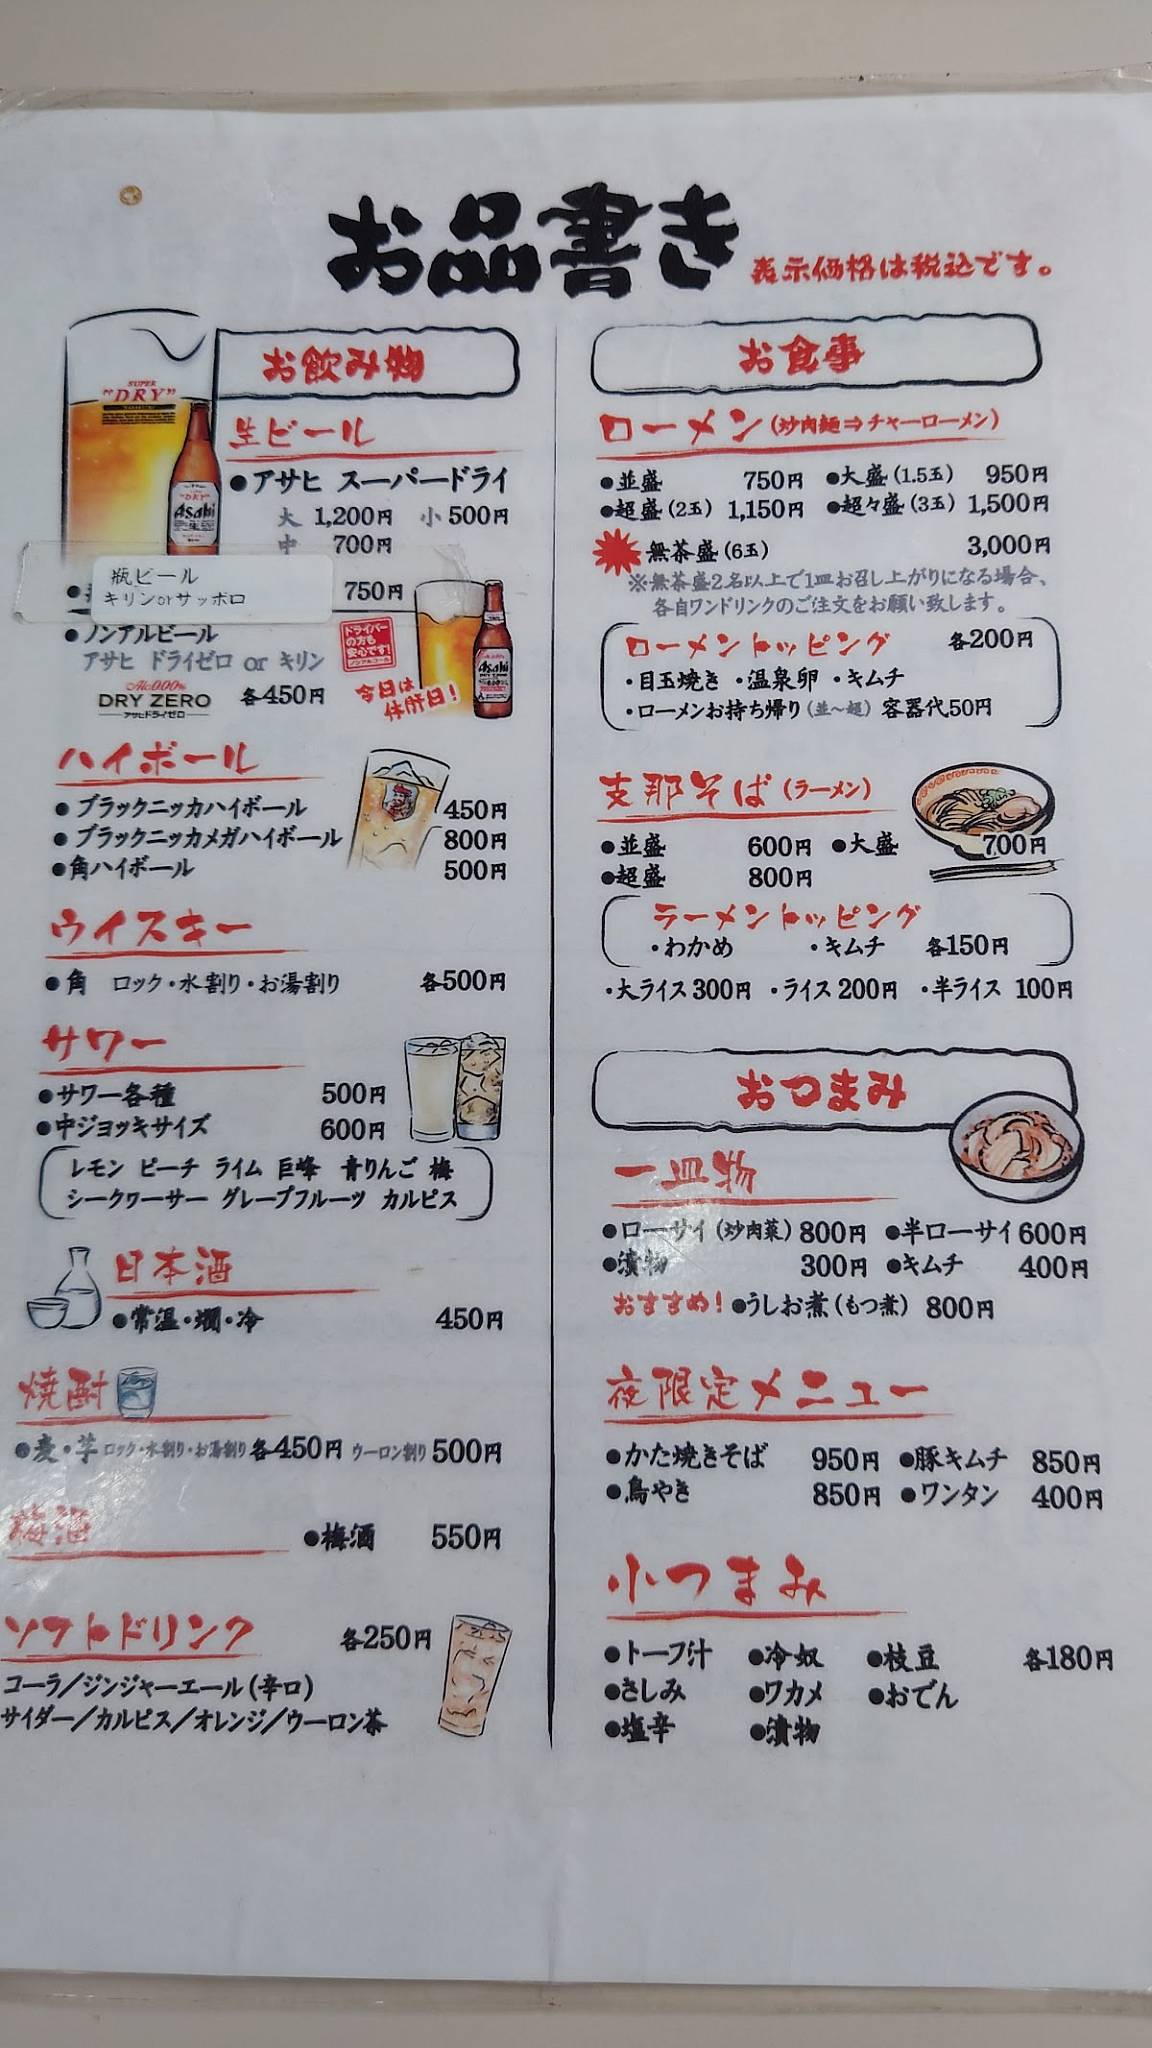 お品書き 表示価格は税込です。
お飲み物
SUPER
"DRY"
生ビール
●アサヒ スーパードライ
大 1,200円 小 500円
中 700円
"DRY"
Asahi
瓶ビール
キリンorサッポロ
750円
●ノンアルビール
アサヒ ドライゼロ or キリン
Alc.0.00%
DRY ZERO
アサヒドライゼロ
各450円
ドライバー
の方も
安心です!
ノンアルコール
今日は
休肝日!
Asahi
ハイボール
●ブラックニッカハイボール 450円
●ブラックニッカメガハイボール 800円
●角ハイボール 500円
ウイスキー
●角 ロック・水割り・お湯割り 各500円
サワー
●サワー各種 500円
●中ジョッキサイズ 600円
レモン ピーチ ライム 巨峰 青りんご 梅
シークヮーサー グレープフルーツ カルピス
日本酒
●常温・燗・冷 450円
焼酎
●麦・芋 ロック・水割り・お湯割り 各450円 ウーロン割り 500円
梅酒
●梅酒 550円
ソフトドリンク 各250円
コーラ/ジンジャーエール(辛口)
サイダー/カルピス/オレンジ/ウーロン茶
お食事
ローメン(炒肉麺⇒チャーローメン)
●並盛 750円 ●大盛(1.5玉) 950円
●超盛(2玉) 1,150円 ●超々盛(3玉) 1,500円
無茶盛(6玉) 3,000円
※無茶盛2名以上で1皿お召し上がりになる場合、
各自ワンドリンクのご注文をお願い致します。
ローメントッピング 各200円
・目玉焼き ・温泉卵 ・キムチ
・ローメンお持ち帰り(並〜超) 容器代50円
支那そば(ラーメン)
●並盛 600円 ●大盛 700円
●超盛 800円
ラーメントッピング
・わかめ ・キムチ 各150円
・大ライス300円 ・ライス200円 ・半ライス 100円
おつまみ
一皿物
●ローサイ(炒肉菜) 800円 ●半ローサイ 600円
●漬物 300円 ●キムチ 400円
おすすめ! ●うしお煮(もつ煮) 800円
夜限定メニュー
●かた焼きそば 950円 ●豚キムチ 850円
●鳥やき 850円 ●ワンタン 400円
小つまみ
●トーフ汁 ●冷奴 ●枝豆 各180円
●さしみ ●ワカメ ●おでん
●塩辛 ●漬物